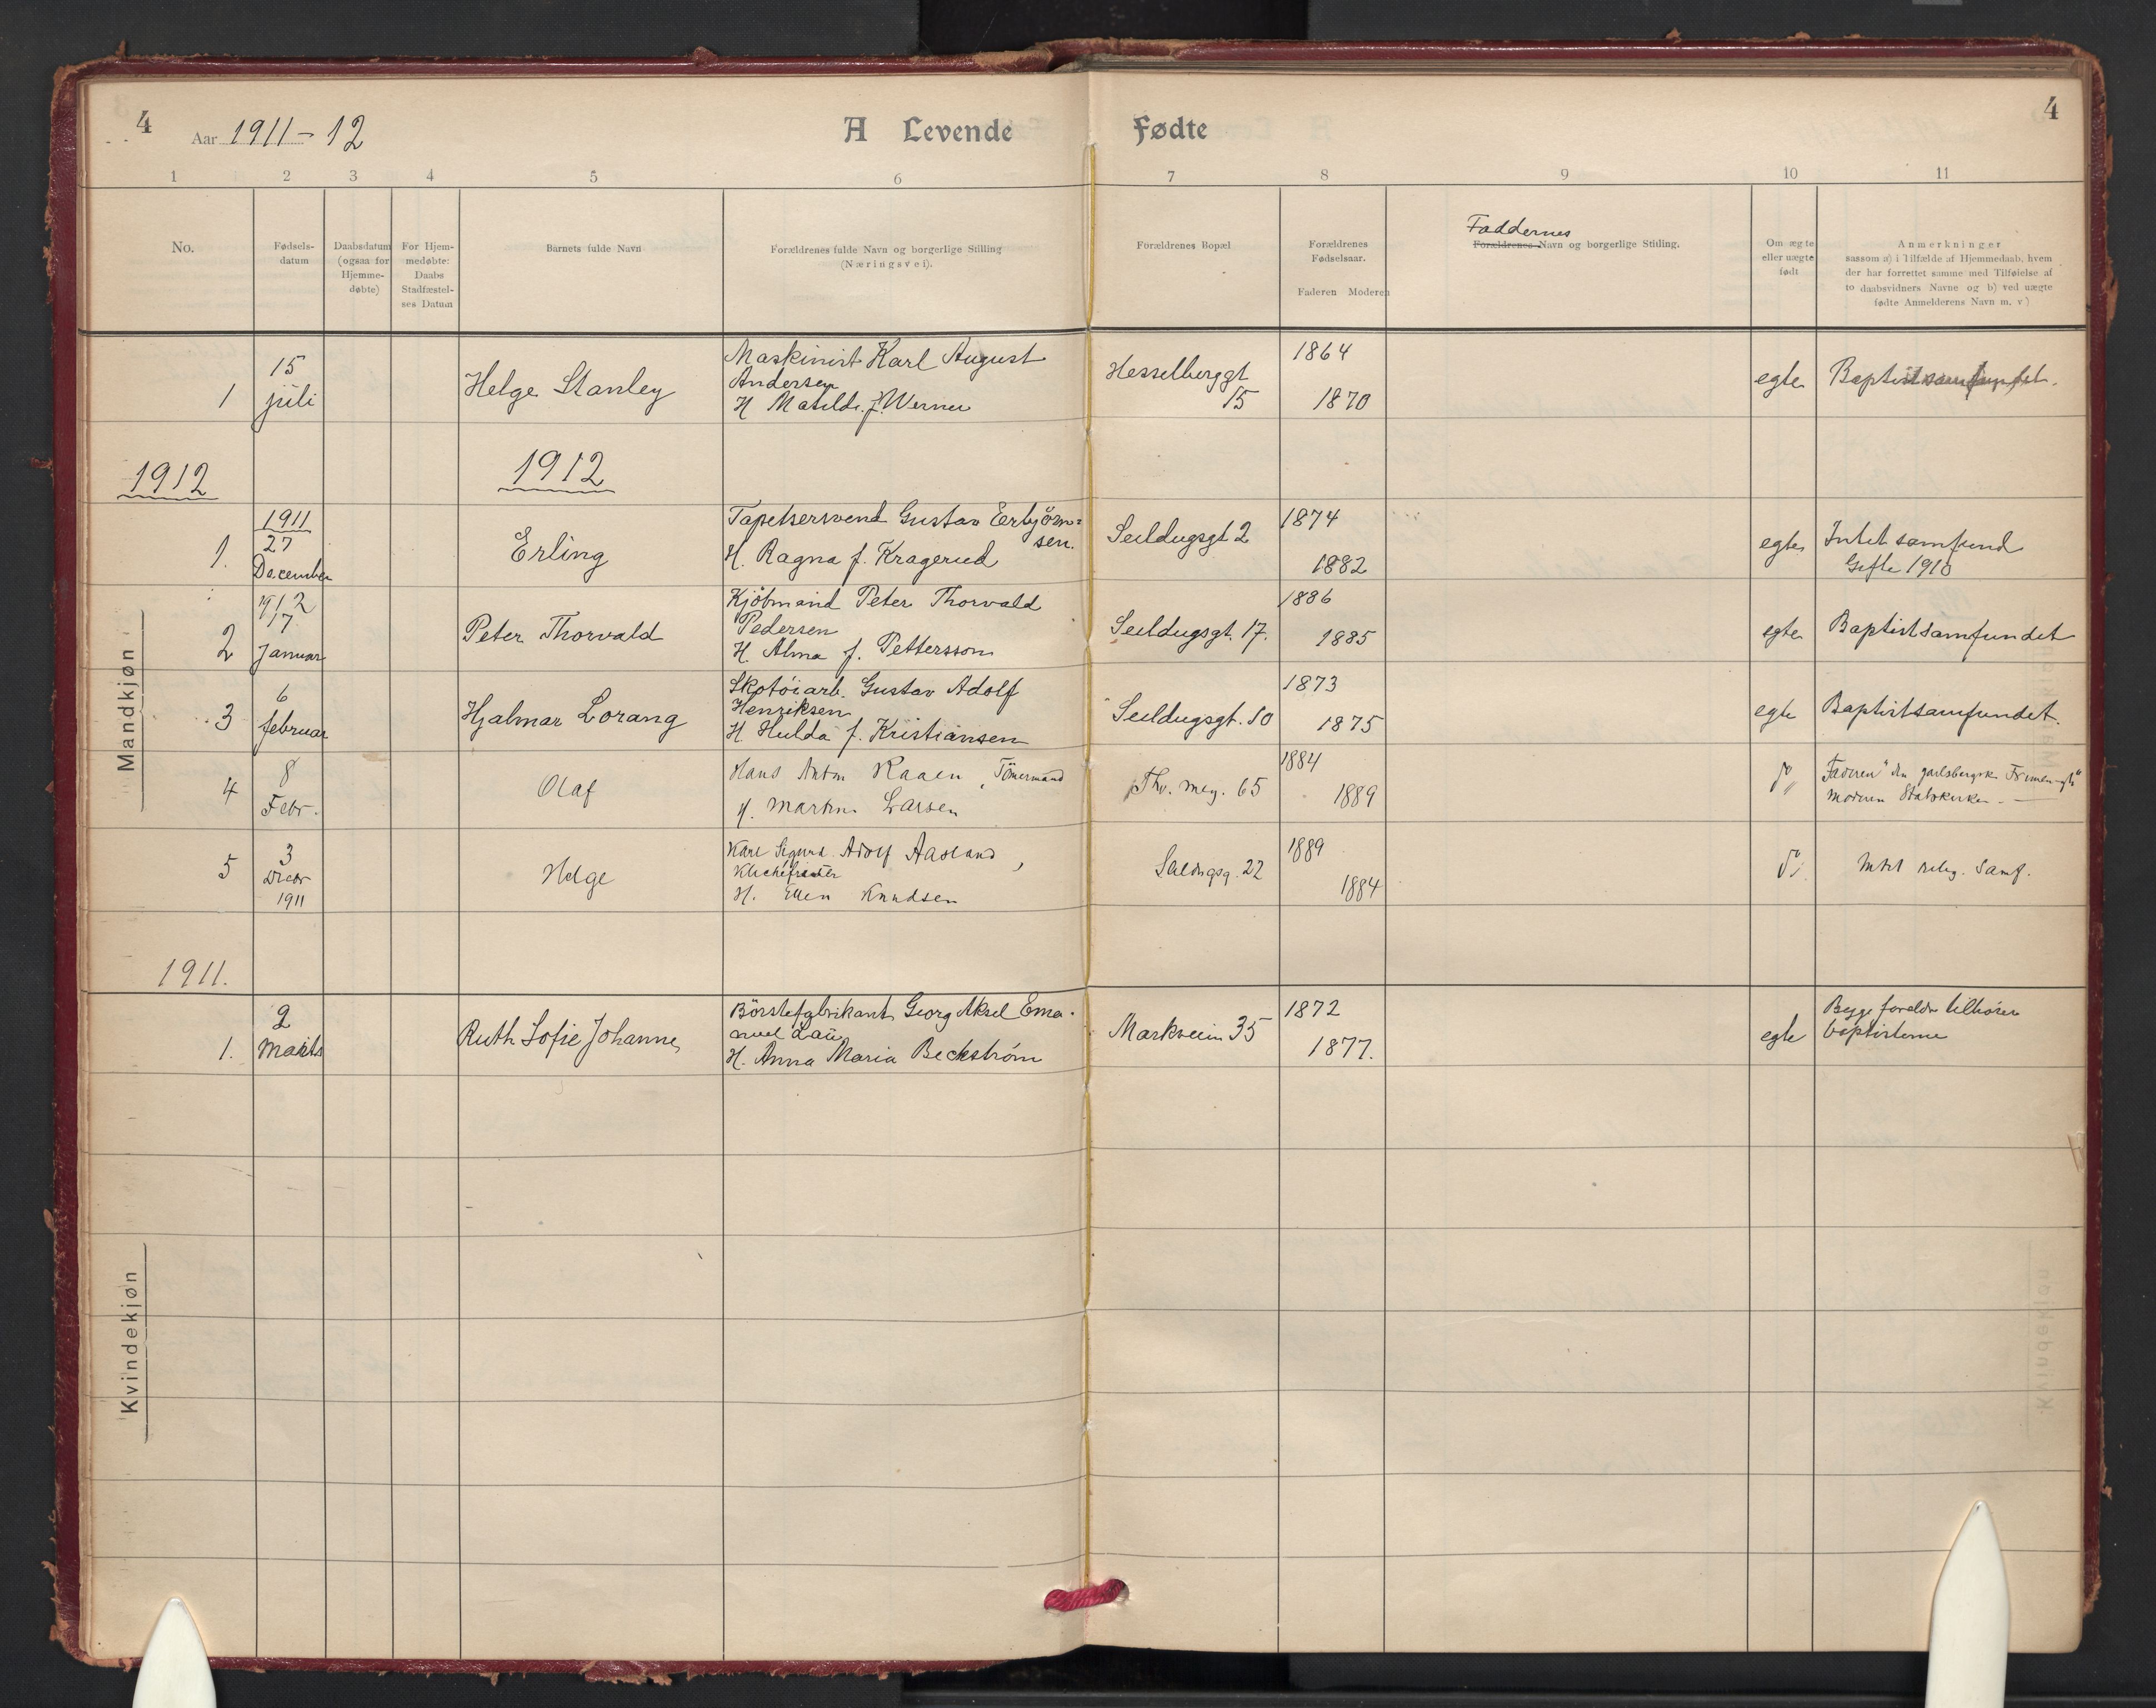 4
Aar 1911-12
A Levende Fødte
4
1 2 3 4 5 6 7 8 9 10 11
No.
Fødsels-
datum
Daabsdatum
(ogsaa for
Hjemme-
døbte)
For Hjem-
medøbte:
Daabs
Stadfæstel-
ses Datum
Barnets fulde Navn
Forældrenes fulde Navn og borgerlige Stilling
(Næringsvei).
Forældrenes Bopæl
Forældrenes
Fødselsaar.
Faderen Moderen
Faddernes
Forældrenes Navn og borgerlige Stilling.
Om ægte
eller uægte
født
Anmerkninger
sassom a) i Tilfælde af Hjemmedaab, hvem
der har forrettet samme med Tilføielse af
to daabsvidners Navne og b) ved uægte
fødte Anmelderens Navn m. v)
Mandkjøn
1
15
juli
Helge Stanley
Maskinist Karl August
Andersen
H Matilde f. Werner
Hesselberggt
15
1864
1870
egte
Baptistsamfundet.
1912
1912
1.
1911
27
December
Erling
Tapetsersvend Gustav Erbjörn-
sen.
H. Ragna f. Kragerud
Seildugsgt 2
1874
1882
egte
Intet samfund
Gifte 1910
2
1912
17
Januar
Peter Thorvald
Kjöbmand Peter Thorvald
Pedersen
H. Alma f. Pettersson
Seildugsgt. 17.
1886
1885
egte
Baptistsamfundet
3
6
februar
Hjalmar Lorang
Skotöiarb. Gustav Adolf
Henriksen
H Hulda f. Kristiansen
Seildugsgt. 50
1873
1875
egte
Baptistsamfundet.
4
8
Febr.
Olaf
Hans Anton Kaaen, Tömermand
H. Martin Larsen
Thv. mey. 65
1884
1889
Faderen
Moderen Statskirken
5
3
Decbr
1911
Helge
Karl Sigurd Adolf Aasland,
H. Ellen Knudsen
22
1889
1884
Intet relig. Samf.
1911.
Kvindekjøn
1.
2
Marts
Ruth Sofie Johanne
Börstefabrikant Georg Aksel Ema-
nuel Lau
H. Anna Maria Beckström
Markveien 35
1872
1877.
egte
Begge foreldre tilhører
baptisterne